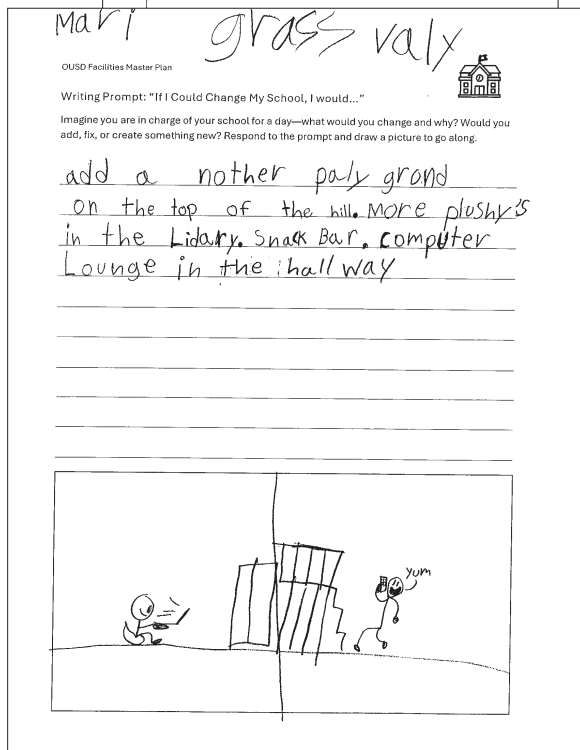 Mari grass valy
OUSD Facilities Master Plan
Writing Prompt: "If I Could Change My School, I would..."
Imagine you are in charge of your school for a day—what would you change and why? Would you
add, fix, or create something new? Respond to the prompt and draw a picture to go along.
add a nother paly grond
on the top of the hill. More plushy's
in the Lidary. Snack Bar. computer
Lounge in the hall way
yum